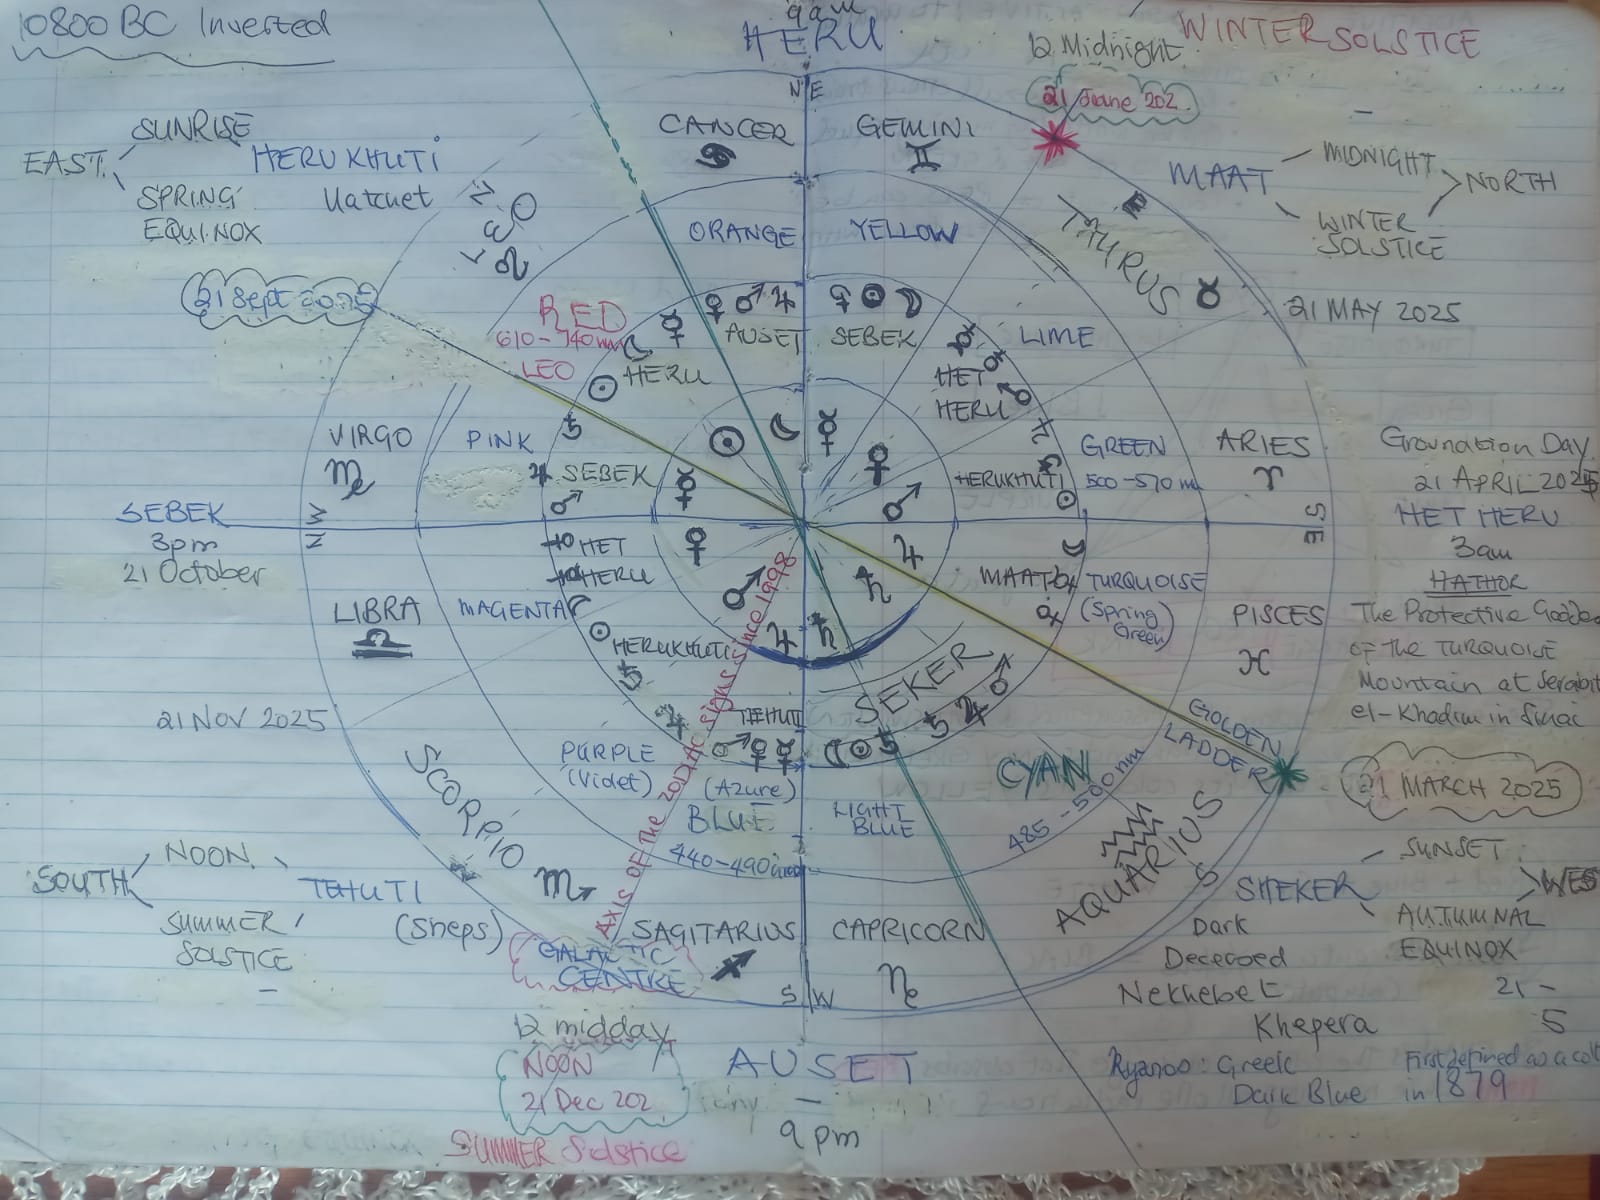 10800 BC Inverted
9am
HERU
WINTER SOLSTICE
12 Midnight
21 June 202
N E
CANCER
GEMINI
♋
♊
EAST
SUNRISE
SPRING
EQUINOX
HERUKHUTI
Hatchet
LEO
♌
TAURUS
♉
MAAT
MIDNIGHT
WINTER
SOLSTICE
NORTH
21 Sept
ORANGE
YELLOW
21 MAY 2025
RED
610-740nm
LEO
♀ ♂ ♃
AUSET
SEBEK
LIME
HERU
HET
HERU
VIRGO
PINK
SEBEK
HERUKHUTI
GREEN
500-570 nm
ARIES
♈
Grounation Day
21 APRIL 2025
HET HERU
3am
HATHOR
The Protective Goddes
of the TURQUOISE
Mountain at Serabit
el-Khadim in Sinai
SEBEK
3pm
21 October
N W
S E
LIBRA
♎
MAGENTA
HET
HERU
HERUKHUTI
MAAT
TURQUOISE
(Spring
Green)
PISCES
♓
21 NOV 2025
SCORPIO
PURPLE
(Violet)
TEHUTI
SEKER
(Azure)
BLUE
440-490nm
LIGHT
BLUE
CYAN
485-500nm
GOLDEN
LADDER
21 MARCH 2025
AXIS OF The ZODIAC signs since 1998
AQUARIUS
SOUTH
NOON
SUMMER
SOLSTICE
TEHUTI
(Sheps)
GALACTIC
CENTRE
SAGITARIUS
♐
CAPRICORN
S W
SHEKER
SUNSET
AUTUMNAL
EQUINOX
WES
Dark
Deceased
Nekhebet
Khepera
21-
5
12 midday
NOON
21 Dec 202
SUMMER Solstice
AUSET
9pm
Kyanos: Greek
Dark Blue
First defined as a col
in 1879